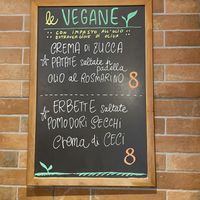 le VEGANE
CON IMPASTO ALL'OLIO
EXTRAVERGINE DI OLIVA
CREMA DI ZUCCA
PATATE saltate in
padella
OLIO AL ROSMARINO 8
ERBETTE saltate
POMODORI SECCHI
Crema di CECI 8